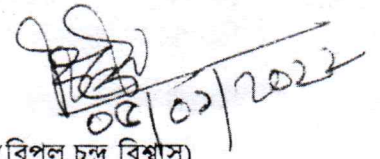 ০৫/০১/২০২২
(বিপুল চন্দ্র বিশ্বাস)